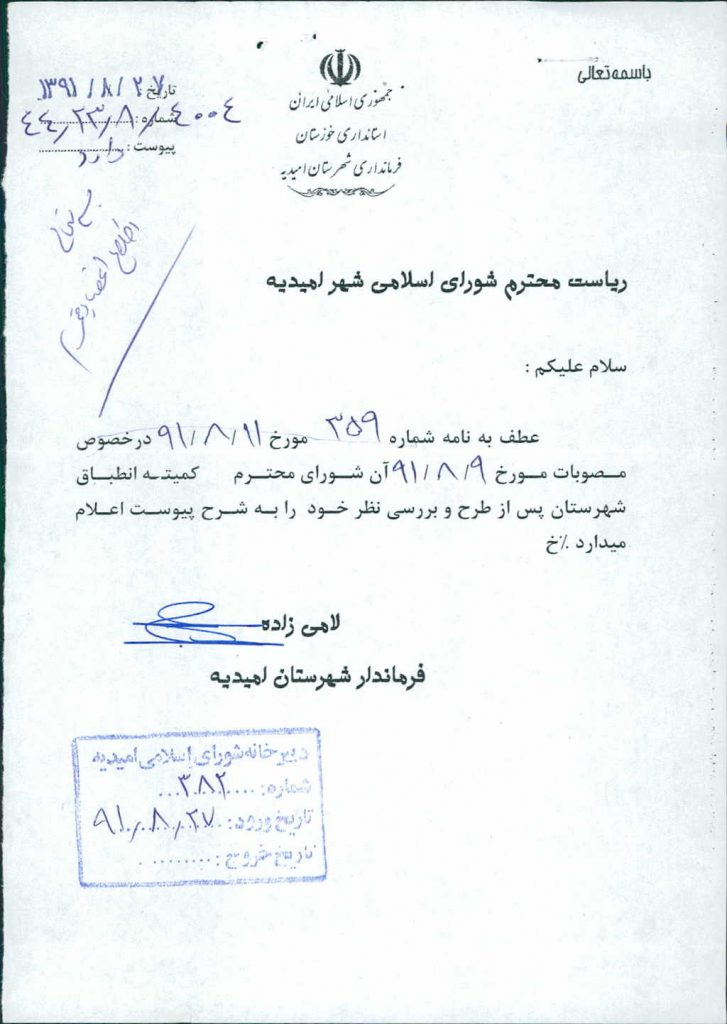 باسمه تعالی
جمهوری اسلامی ایران
استانداری خوزستان
فرمانداری شهرستان امیدیه
تاریخ: ۱۳۹۱/۸/۲۷
شماره: ۴۴٫۲۳٫۸٫۴۰۰۴
پیوست: دارد
ریاست محترم شورای اسلامی شهر امیدیه
سلام علیکم :
عطف به نامه شماره ۳۵۹ مورخ ۹۱/۸/۱۱ درخصوص
مصوبات مورخ ۹۱/۸/۹ آن شورای محترم کمیته انطباق
شهرستان پس از طرح و بررسی نظر خود را به شرح پیوست اعلام
میدارد ٪خ
لامی زاده
فرماندار شهرستان امیدیه
دبیرخانه شورای اسلامی امیدیه
شماره: ۳۸۲
تاریخ ورود: ۹۱٫۸٫۲۷
تاریخ خروج: